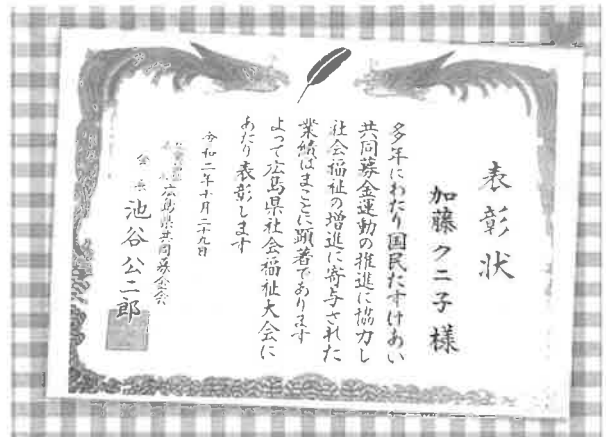 表彰状
加藤クニ子様
多年にわたり国民たすけあい
共同募金運動の推進に協力し
社会福祉の増進に寄与された
業績はまことに顕著であります
よって広島県社会福祉大会に
あたり表彰します
令和二年十月二十九日
広島県共同募金会
会長 池谷公二郎